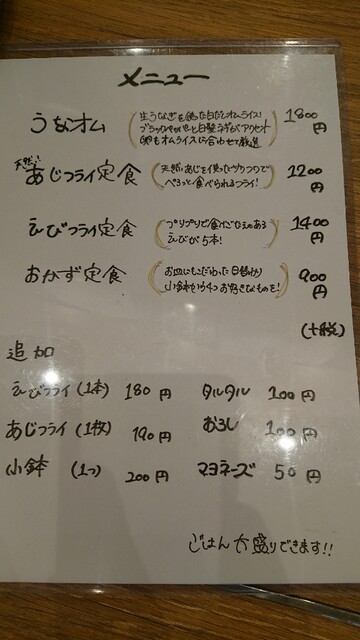 メニュー
うなオム
生うなぎを使った白だしオムライス!
ブラックペッパーと白髪ネギがアクセント
卵もオムライスに合わせて厳選
1800円
天然!!
あじフライ定食
天然あじを使ったサクフワで
ペろっと食べられるフライ!
1200円
えびフライ定食
プリプリで食べごたえのある
えびが5本!
1400円
おかず定食
お皿にもこだわった日替わり
小鉢から4つお好きなものを!
900円
(+税)
追加
えびフライ (1本) 180円
タルタル 100円
あじフライ (1枚) 190円
おろし 100円
小鉢 (1つ) 200円
マヨネーズ 50円
ごはん大盛りできます!!